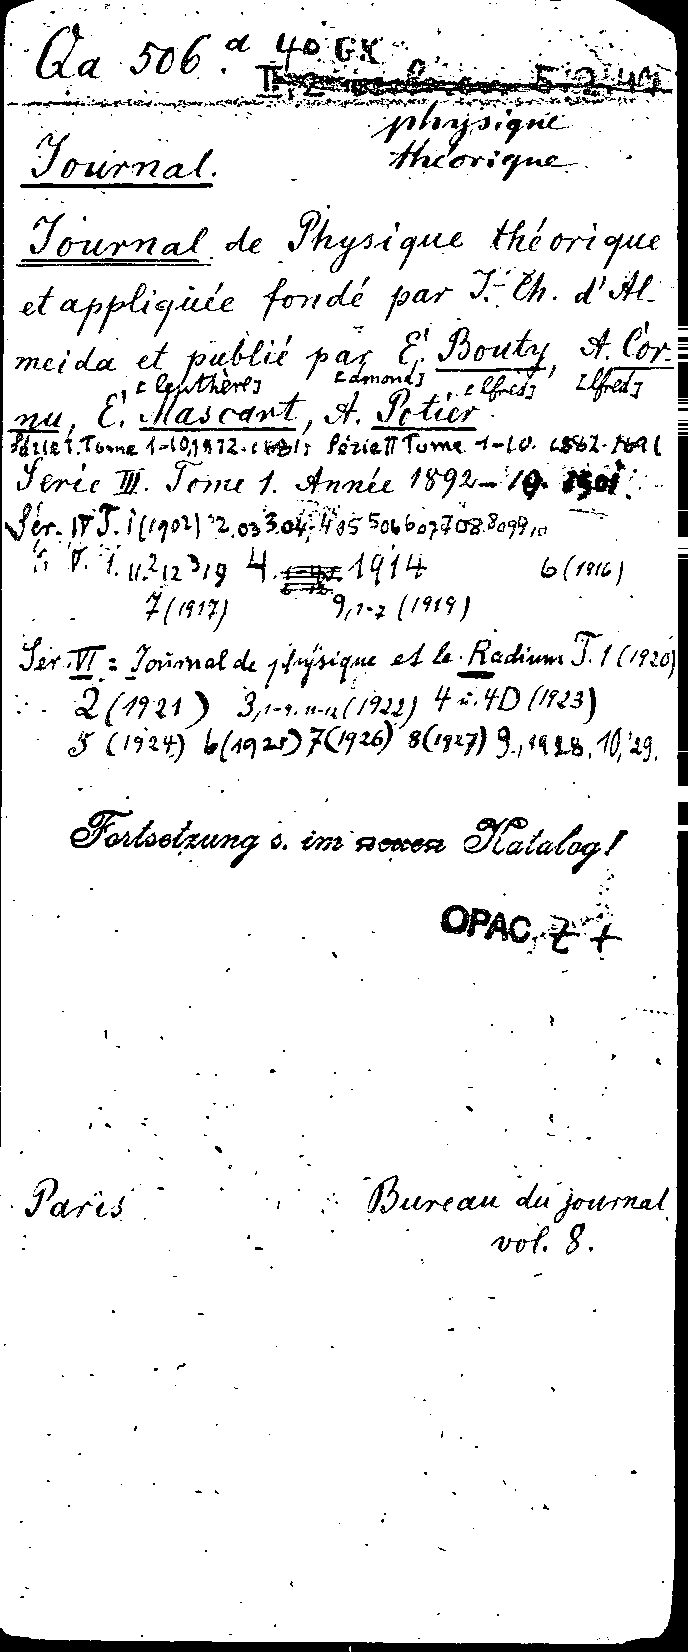 Qa 506.a 4° GX
physique
théorique
Journal.
Journal de Physique théorique
et appliquée fondé par J.-Ch. d'Al-
meida et publié par E. Bouty, A. Cor-
[leuthère] [dmond] [lfred] [lfred]
nu, E. Mascart, A. Potier.
Série I. Tome 1-10, 1872-1881; Série II Tome 1-10. 1882-1891
Serie III. Tome 1. Année 1892-10. 1901.
Ser. IV T. 1 (1902) 2.03 3.04
4. 1914 6 (1916)
7 (1917) 9,1-7 (1919)
Ser. VI = Journal de physique et le Radium T. 1 (1920)
2 (1921) 3,1-9.11-12 (1922) 4 u. 4D (1923)
5 (1924) 6 (1925) 7 (1926) 8 (1927) 9., 1928. 10,'29.
Fortsetzung s. im neuen Katalog!
OPAC Z +
Paris Bureau du journal
vol. 8.